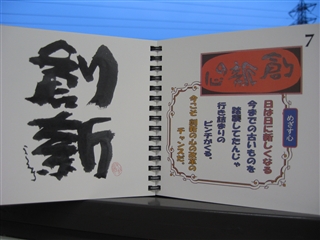 創新
7
創新の心
めざす心
日は日に新しくなる
今までの古いものを
踏襲してたんじゃ
行き詰まりの
ピンチがくる。
今こそ 創新の心の改革の
チャンスだ。